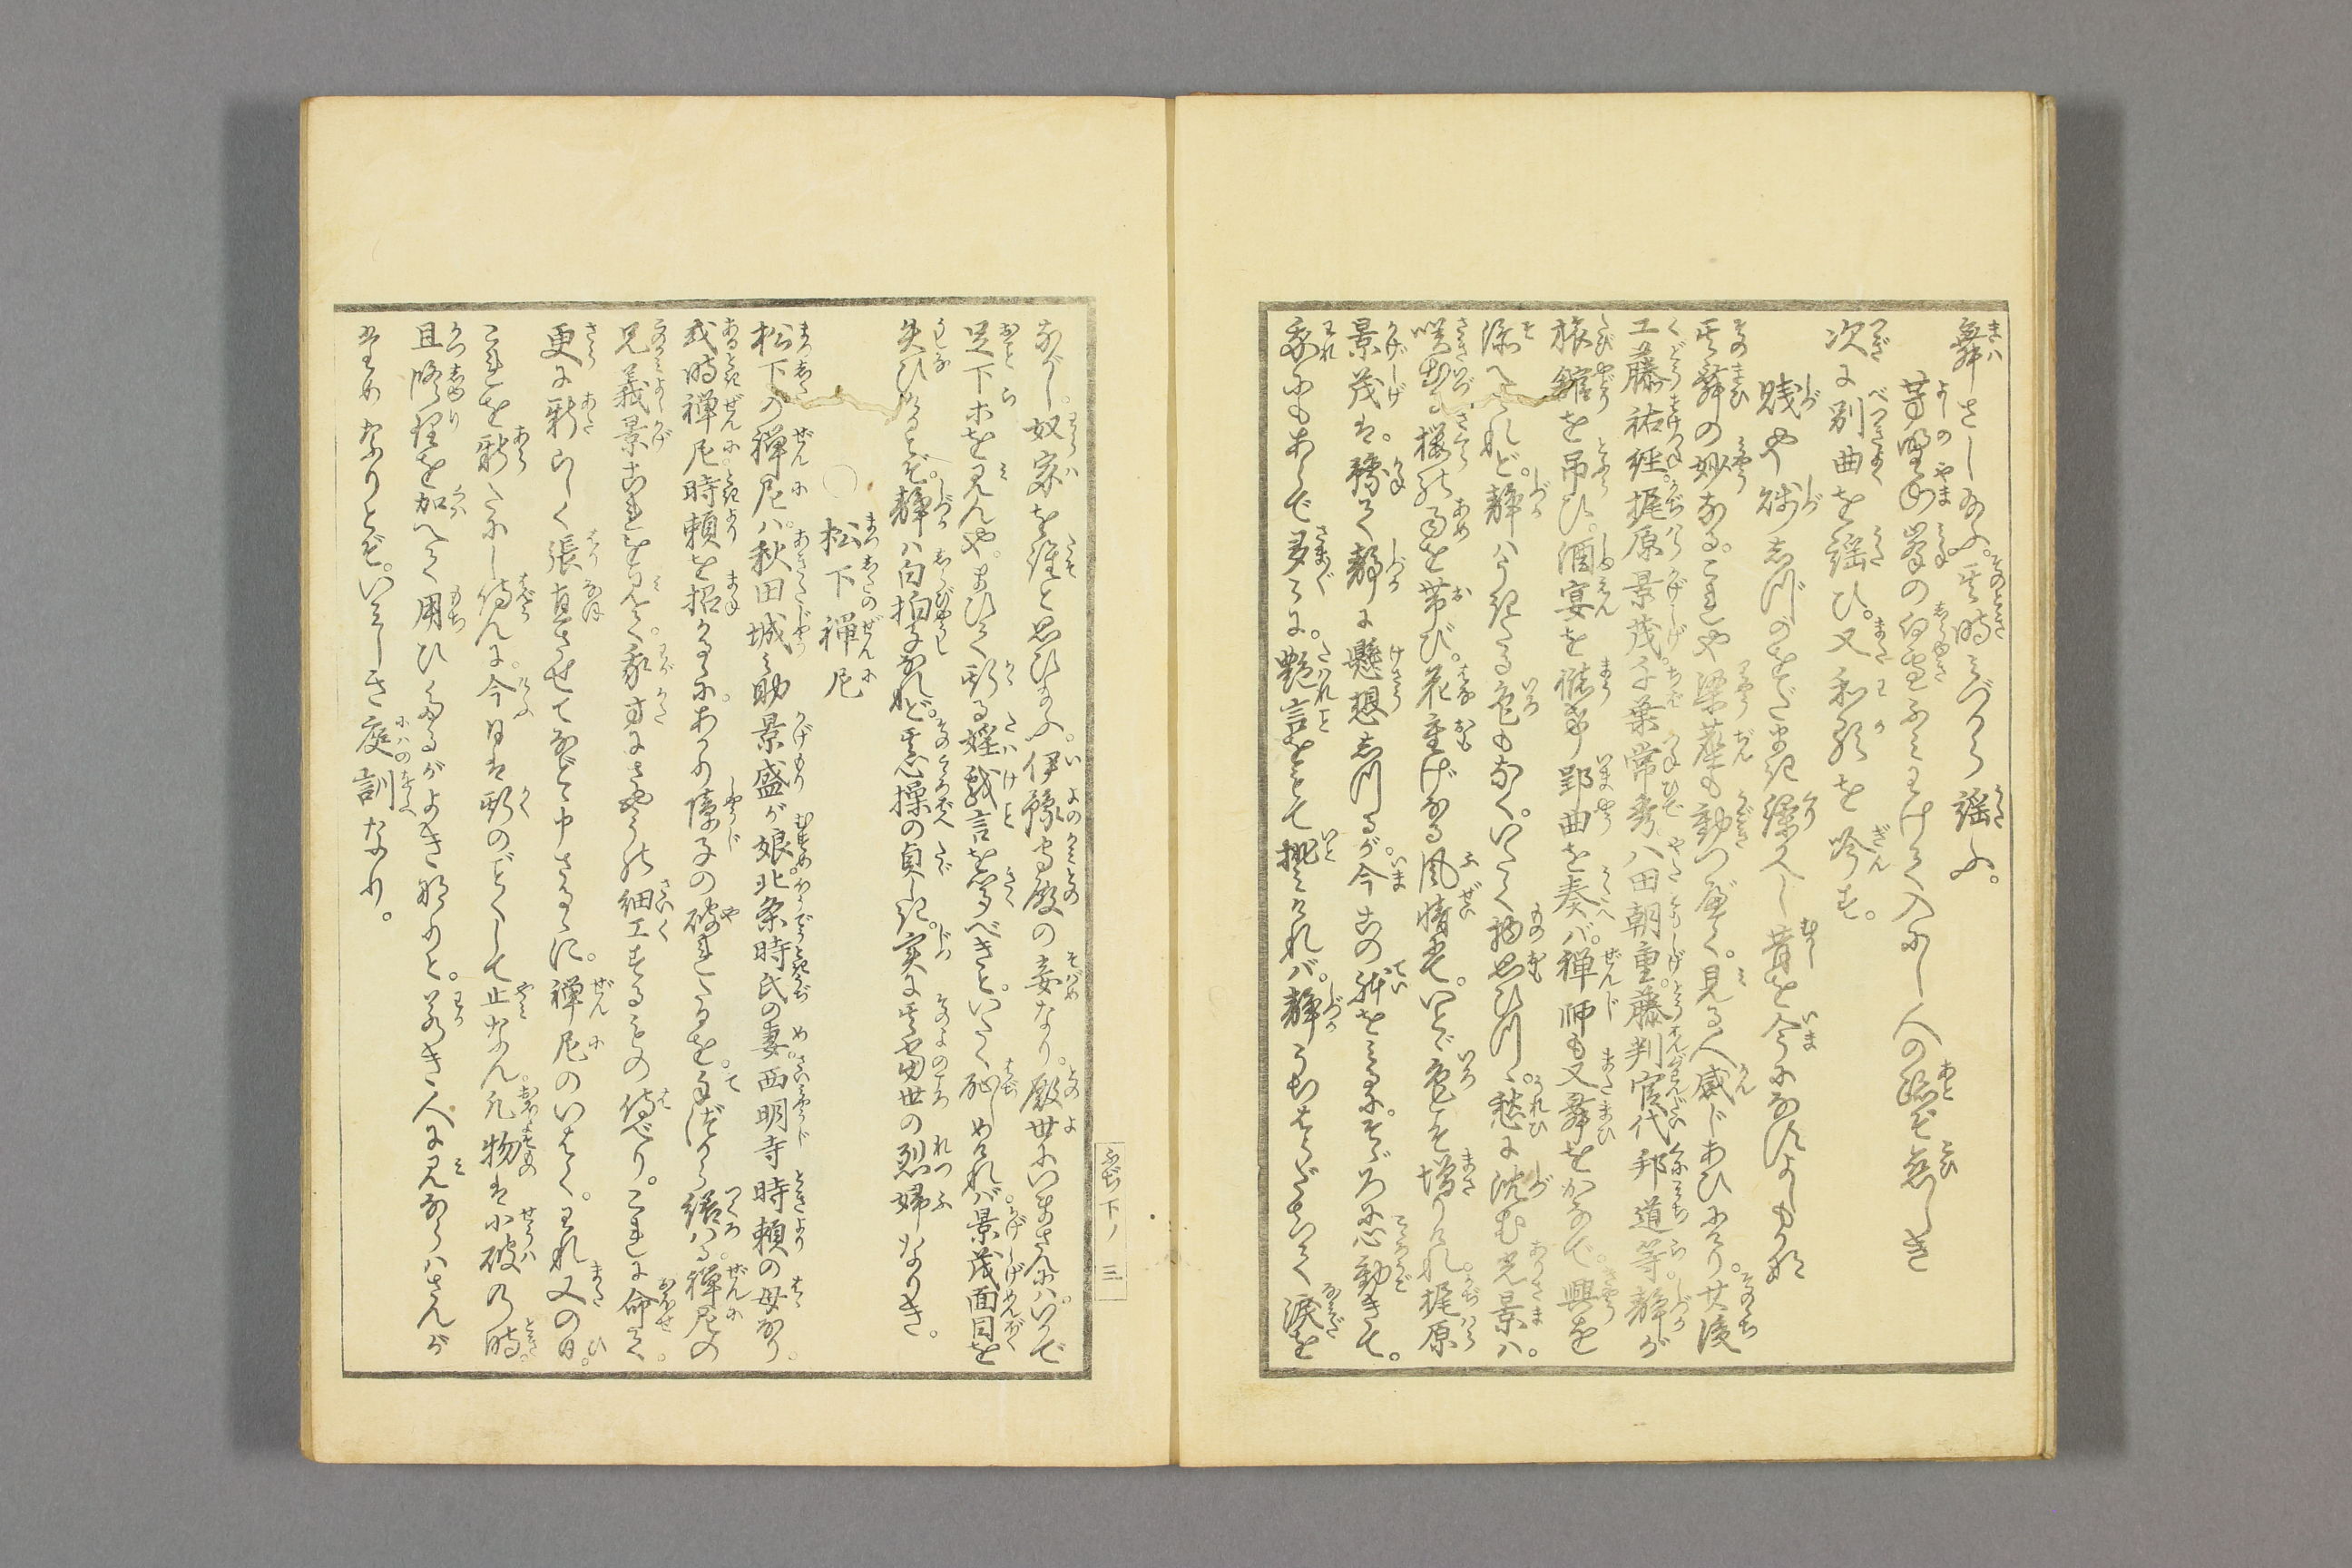 舞さしむ。其時みづから謡ふ。
芳野山峯の白雪ふみわけて入にし人の跡ぞ恋しき
次に別曲を謡ひ。又和歌を吟ず。
賤や賤しづのをだまき繰かへし昔を今になすよしもがな
其舞の妙なる。これや梁塵も動つべく。見る人感じあひにけり。其後
工藤祐経。梶原景茂。千葉常秀。八田朝重。藤判官代邦道等。静が
旅館を吊ひ。酒宴を催し。郢曲を奏バ。禅師も又舞をかなで。興を
添へけれど。静ハうきたる色もなく。いたく物思ひつゝ。愁に沈む光景ハ。
咲出し桜の雨を帯び。花重げなる風情にて。いとゞ色こそ増りけれ。梶原
景茂は。豫て静に懸想しつるが。今この躰をみるに。そゞろに心動きて。
我にもあらで多々に。艶言をもて挑みければ。静うちはらだちて涙を
ながし。奴家を誰と思ひ給ふ。伊豫守殿の妾なり。殿世にいまさんにハ。いかで
足下ホを見んや。まいて斯る婬戯言を聞べきと。いたく恥しめければ。景茂面目を
失ひけるとぞ。静ハ白拍子なれど。其志操の貞しき。実に其当世の烈婦なりき。
○松下禅尼
松下の禅尼ハ。秋田城之助景盛が娘。北条時氏の妻。西明寺時頼の母なり。
或時禅尼。時頼を招かるゝに。あかり障子の破れたるを。手づから繕ハる。禅尼の
兄義景これを見て。我方にさやうの細工するもの侍べり。これに命て
更に新らしく張直させてなど申さるゝに。禅尼のいはく。われ又の日。
これを新たにし侍らんに。今日は斯のごとくして止なん。凡物は小破の時。
且修理を加へて用ひなるがよき物ぞと。若き人に見ならハさんが
ためなりとぞ。いみじき庭訓なり。
ふぢ下ノ 三